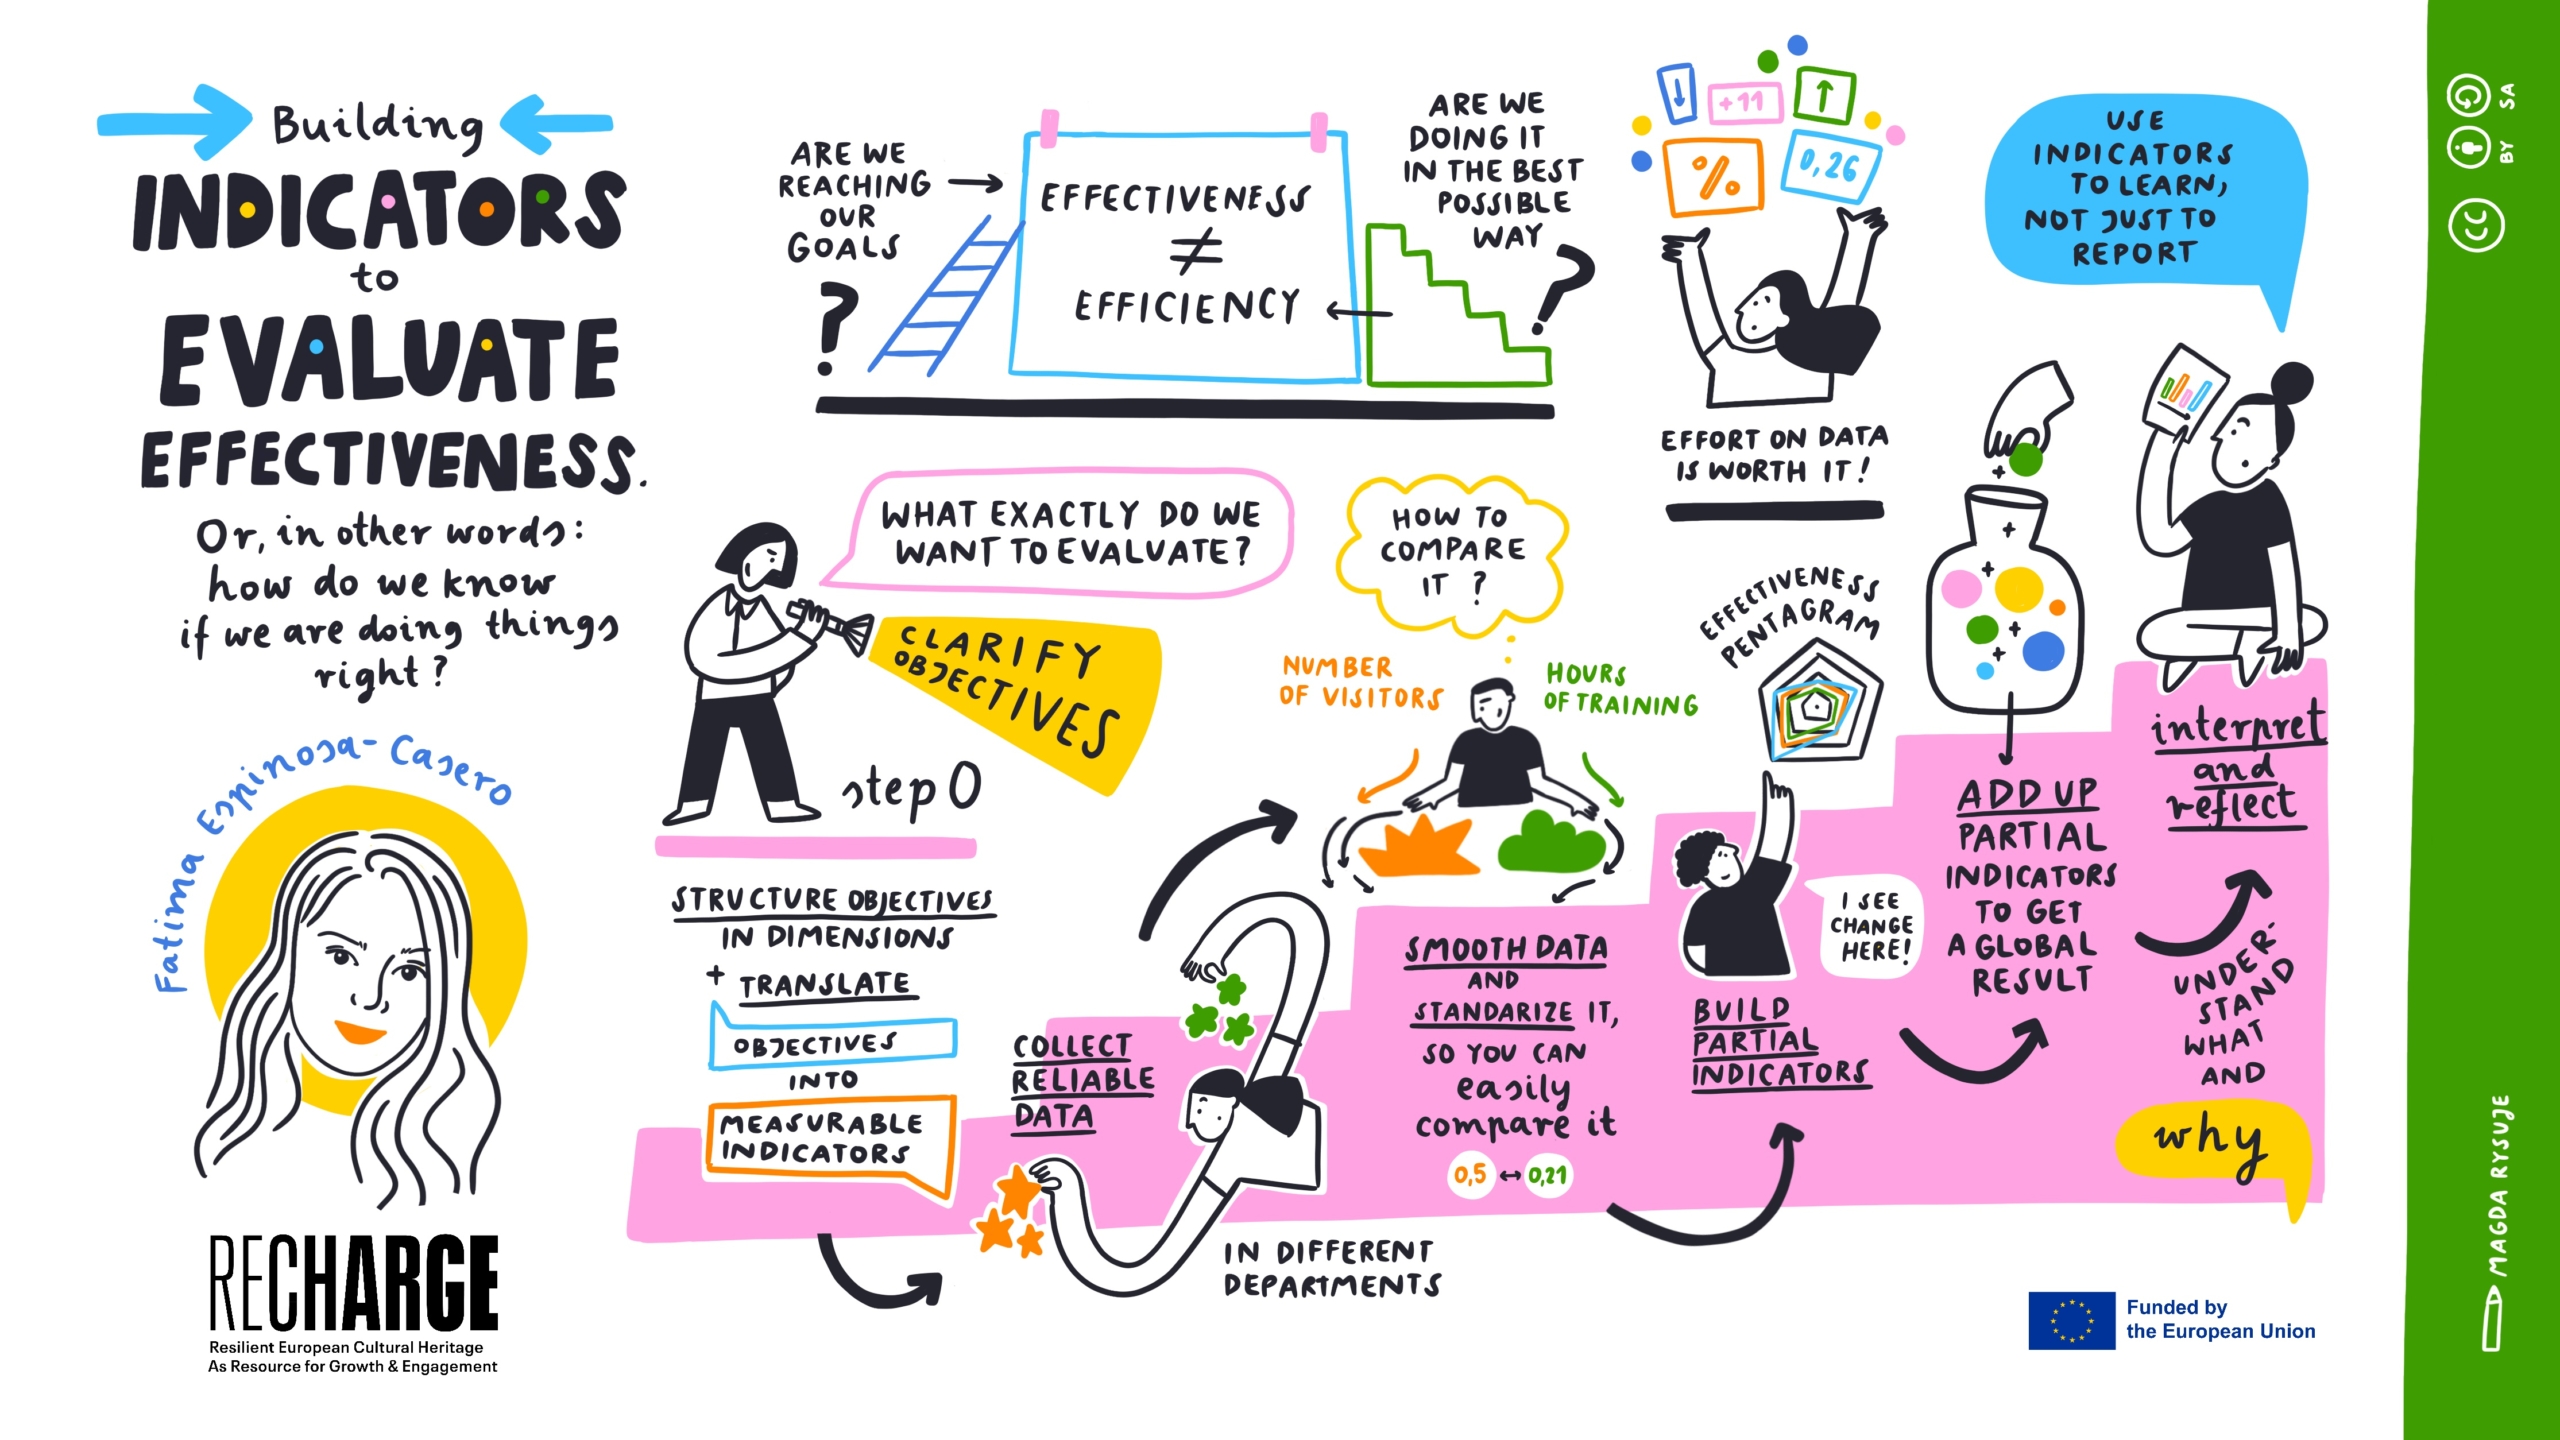 Building
INDICATORS
to
EVALUATE
EFFECTIVENESS.
Or, in other words:
how do we know
if we are doing things
right?
Fatima Espinosa-Casero
RECHARGE
Resilient European Cultural Heritage
As Resource for Growth & Engagement
ARE WE
REACHING
OUR
GOALS
?
EFFECTIVENESS
≠
EFFICIENCY
ARE WE
DOING IT
IN THE BEST
POSSIBLE
WAY
?
↓
+11
↑
%
0,26
EFFORT ON DATA
IS WORTH IT!
USE
INDICATORS
TO LEARN,
NOT JUST TO
REPORT
WHAT EXACTLY DO WE
WANT TO EVALUATE?
CLARIFY
OBJECTIVES
step 0
STRUCTURE OBJECTIVES
IN DIMENSIONS
+ TRANSLATE
OBJECTIVES
INTO
MEASURABLE
INDICATORS
COLLECT
RELIABLE
DATA
IN DIFFERENT
DEPARTMENTS
HOW TO
COMPARE
IT ?
NUMBER
OF VISITORS
HOURS
OF TRAINING
SMOOTH DATA
AND
STANDARIZE IT,
SO YOU CAN
easily
compare it
0,5 ↔ 0,21
EFFECTIVENESS
PENTAGRAM
I SEE
CHANGE
HERE!
BUILD
PARTIAL
INDICATORS
+
+
+
+
+
ADD UP
PARTIAL
INDICATORS
TO GET
A GLOBAL
RESULT
interpret
and
reflect
UNDER-
STAND
WHAT
AND
why
Funded by
the European Union
CC
BY
SA
MAGDA RYSUJE